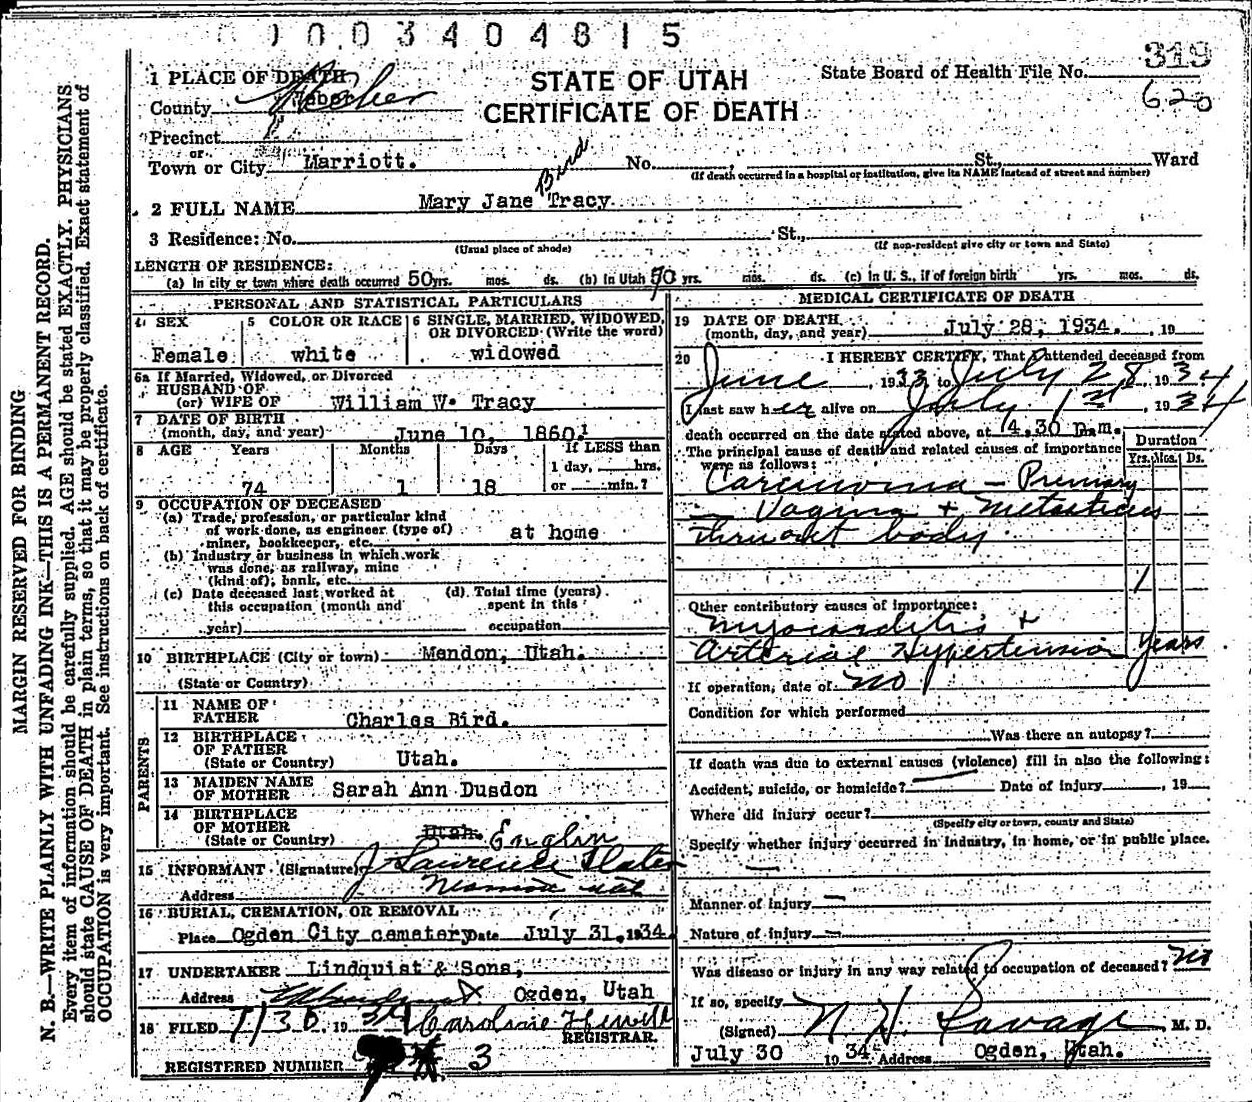 1003404815
319
620
STATE OF UTAH
CERTIFICATE OF DEATH
State Board of Health File No.
1 PLACE OF DEATH
County Weber
Precinct
or
Town or City Marriott. No. , St., Ward
(If death occurred in a hospital or institution, give its NAME instead of street and number)
Bird
2 FULL NAME Mary Jane Tracy
3 Residence: No. St.,
(Usual place of abode) (If non-resident give city or town and State)
LENGTH OF RESIDENCE:
(a) In city or town where death occurred 50 yrs. mos. ds. (b) In Utah 70 yrs. mos. ds. (c) In U. S., if of foreign birth yrs. mos. ds.
PERSONAL AND STATISTICAL PARTICULARS
4 SEX 5 COLOR OR RACE 6 SINGLE, MARRIED, WIDOWED, OR DIVORCED (Write the word)
Female white widowed
6a If Married, Widowed, or Divorced
HUSBAND OF
(or) WIFE OF William W. Tracy
7 DATE OF BIRTH
(month, day, and year) June 10, 1860.
8 AGE Years Months Days If LESS than
1 day, hrs.
74 1 18 or min.?
9 OCCUPATION OF DECEASED
(a) Trade, profession, or particular kind
of work done, as engineer (type of)
miner, bookkeeper, etc. at home
(b) Industry or business in which work
was done, as railway, mine
(kind of), bank, etc.
(c) Date deceased last worked at
this occupation (month and
year)
(d) Total time (years)
spent in this
occupation
10 BIRTHPLACE (City or town) Mendon, Utah.
(State or Country)
PARENTS
11 NAME OF
FATHER Charles Bird.
12 BIRTHPLACE
OF FATHER
(State or Country) Utah.
13 MAIDEN NAME
OF MOTHER Sarah Ann Dusdon
14 BIRTHPLACE
OF MOTHER
(State or Country) Utah. Englin
15 INFORMANT (Signature) J Lawrence Slater
Address
16 BURIAL, CREMATION, OR REMOVAL
Place Ogden City cemetery Date July 31, 1934
17 UNDERTAKER Lindquist & Sons,
Address Ogden, Utah
18 FILED 7/30 1934 Caroline Hewitt
REGISTRAR.
REGISTERED NUMBER 3
MEDICAL CERTIFICATE OF DEATH
19 DATE OF DEATH
(month, day, and year) July 28, 1934. , 19
20 I HEREBY CERTIFY, That I attended deceased from
June , 1933 to July 28, 1934
I last saw her alive on July 1st, 1934
death occurred on the date stated above, at 4.30 p.m.
The principal cause of death and related causes of importance
were as follows:
Duration
Yrs. Mos. Ds.
Carcinoma - Primary
- Vagina + Metasticies
thruout body
1
Other contributory causes of importance:
Myocarditis +
Arterial Hypertension years
If operation, date of no
Condition for which performed
Was there an autopsy?
If death was due to external causes (violence) fill in also the following:
Accident, suicide, or homicide? Date of injury , 19
Where did injury occur?
(Specify city or town, county and State)
Specify whether injury occurred in industry, in home, or in public place.
Manner of injury
Nature of injury
Was disease or injury in any way related to occupation of deceased? no
If so, specify
(Signed) N. H. Savage M. D.
July 30 1934 Address Ogden, Utah.
MARGIN RESERVED FOR BINDING
N. B.—WRITE PLAINLY WITH UNFADING INK—THIS IS A PERMANENT RECORD.
Every item of information should be carefully supplied. AGE should be stated EXACTLY. PHYSICIANS
should state CAUSE OF DEATH in plain terms, so that it may be properly classified. Exact statement of
OCCUPATION is very important. See instructions on back of certificate.